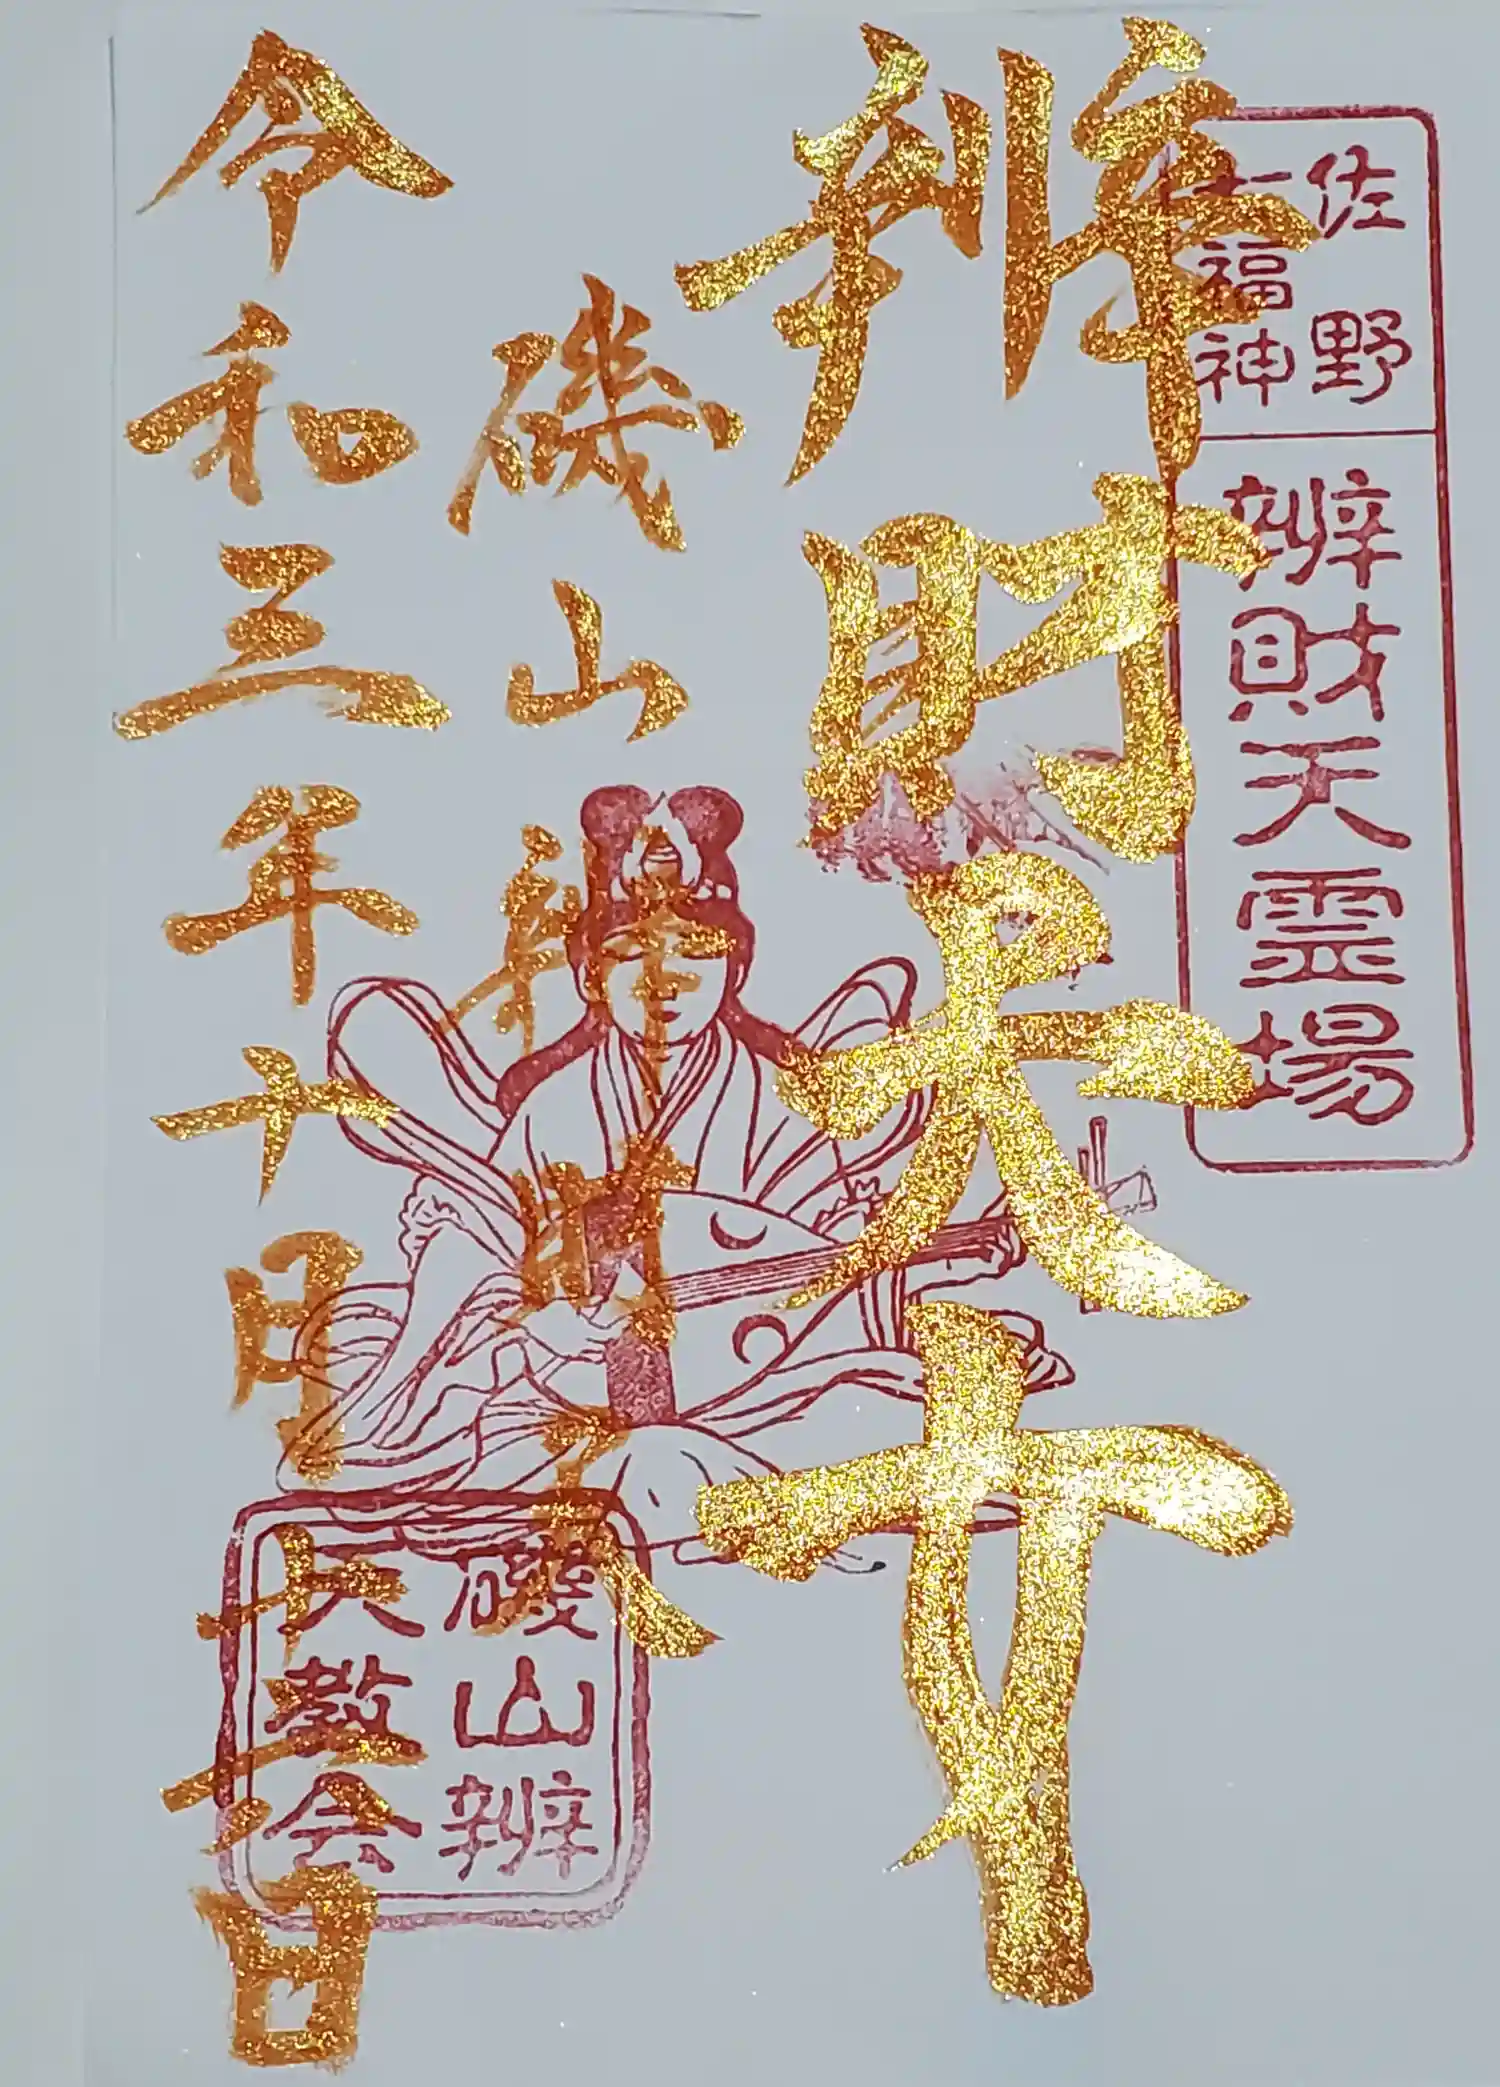 佐野
七福神
辨財天霊場
辨財天女
磯山辨財天
令和三年十月十二日
磯山辨
天教会